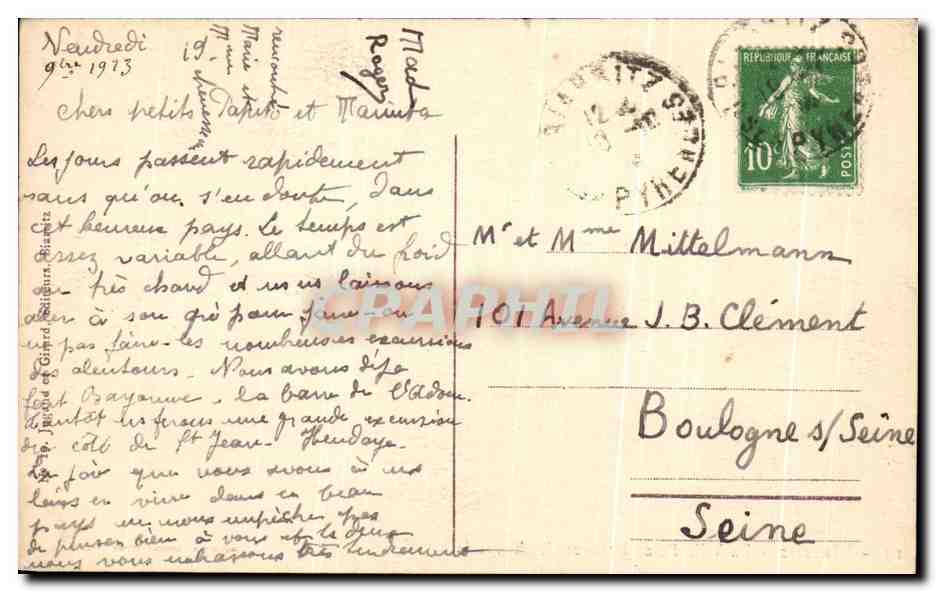 Vendredi
9bre 1913
Mad
Roger
rencontré
Marie et
chers petits Papito et Mamita
Les jours passent rapidement
sans qu'on s'en doute, dans
cet heureux pays. Le temps est
assez variable, allant du froid
au très chaud et nous laissons
aller à son gré pour faire ou
ne pas faire les nombreuses excursions
des alentours. Nous avons déjà
fait Bayonne, la barre de l'Adour.
Bientôt ns ferons une grande excursion
du côté de St Jean. Hendaye.
La joie que nous avons à ns
en vivre dans ce beau
pays ne nous empêche pas
de penser bien à vous et les deux
nous vous embrassons très tendrement
Girard, éditeurs, Biarritz
BIARRITZ
PYRENEES
RÉPUBLIQUE FRANÇAISE
10c
POSTES
Mr et Mme Mittelmann
101 Avenue J. B. Clément
Boulogne s/Seine
Seine
CPAPHIL